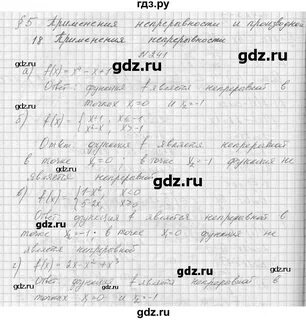 §5 Применения непрерывности и производной
18 Применения непрерывности
№ 241
а) f(x) = x⁴ - x + 1
Ответ: функция f является непрерывной в
точках x₁=0 и x₂=-1
б) f(x) = { x+1, x≤-1
x²-x, x>-1
Ответ: функция f является непрерывной
в точке x₁=0; в точке x₂=-1 функция не
является непрерывной.
в) f(x) = { 1-x², x<0
5-2x, x≥0
Ответ: функция f является непрерывной в
точке x₂=-1. в точке x₁=0 функция не
является непрерывной
г) f(x) = 2x - x² + x³
Ответ: функция f является непрерывной в
точках x₁=0 и x₂=-1
gdz.ru
gdz.ru
gdz.ru
gdz.ru
gdz.ru
gdz.ru
gdz.ru
gdz.ru